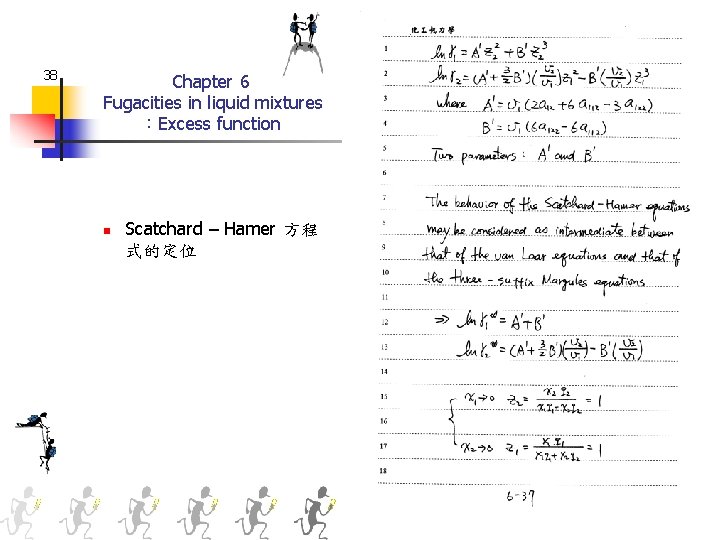 38
Chapter 6
Fugacities in liquid mixtures
：Excess function
Scatchard – Hamer 方程
式的定位
化工熱力學
1 ln γ₁ = A' z₂² + B' z₂³
2 ln γ₂ = (A' + 3/2 B')(v₂/v₁) z₁² − B'(v₂/v₁) z₁³
3 where A' = v₁(2a₁₂ + 6a₁₁₂ − 3a₁₂₂)
4 B' = v₁(6a₁₂₂ − 6a₁₁₂)
5 Two parameters: A' and B'
6
7 The behavior of the Scatchard-Hamer equations
8 may be considered as intermediate between
9 that of the van Laar equations and that of
10 the three-suffix Margules equations
11
12 ⇒ ln γ₁^∞ = A' + B'
13 ln γ₂^∞ = (A' + 3/2 B')(v₂/v₁) − B'(v₂/v₁)
14
15 x₁→0 z₂ = x₂v₂/(x₁v₁+x₂v₂) = 1
16
17 x₂→0 z₁ = x₁v₁/(x₁v₁+x₂v₂) = 1
18
6-37